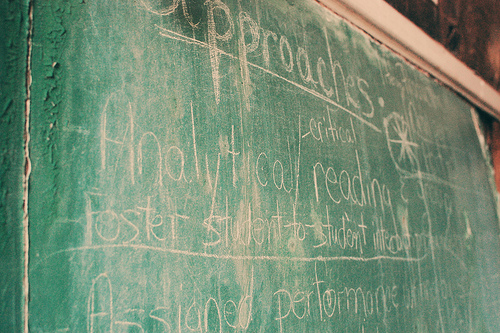 Approaches:
critical
Analytical reading
Foster student to student
Assigned performance